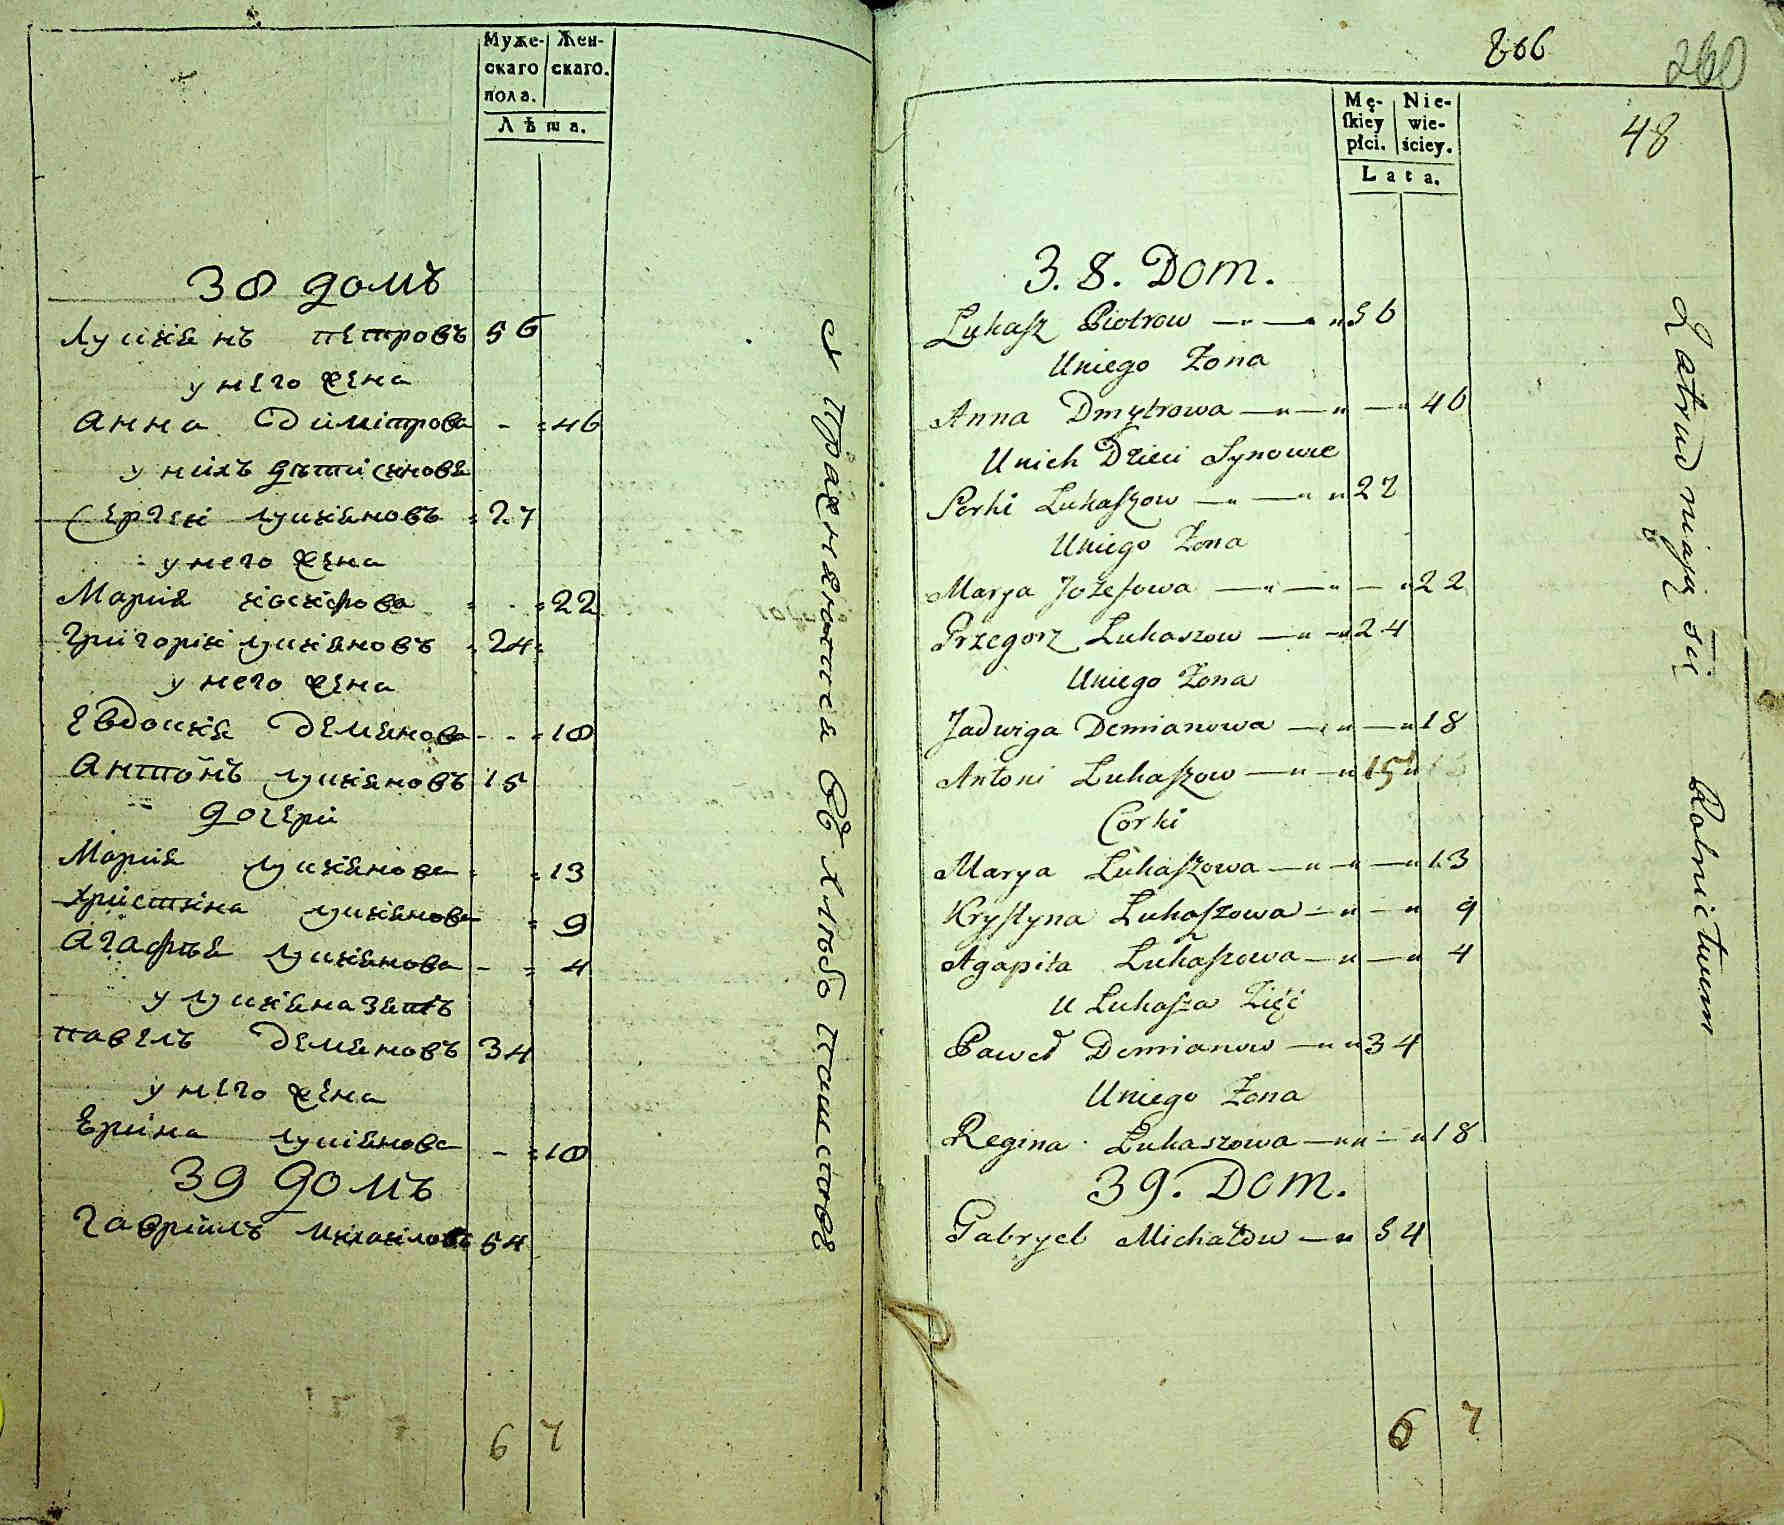 Муже-
скаго
пола.
Жен-
скаго.
Лѣта.
38 домъ
Лукіянъ Петровъ 56
у него жена
Анна Димітрова 46
у нихъ дѣти сынове
Сергеи Лукіяновъ 27
у него жена
Марія Іосифова 22
Григории Лукіяновъ 24
у него жена
Евдокія Демянова 18
Антонъ Лукіяновъ 15
дочери
Марія Лукіянова 13
Христина Лукіянова 9
Агафья Лукіянова 4
у Лукіяна зять
Павелъ Демяновъ 34
у него жена
Ерина Лукіянова 18
39 домъ
Гавриилъ Михаиловъ 54
6 7
упражняются въ хлѣбопашествѣ
866
260
48
Mę-
ſkiey
płci.
Nie-
wie-
ściey.
Lata.
3.8. Dom.
Łukaſz Piotrow — „ — „ 56
Uniego Żona
Anna Dmytrowa — „ — „ — „ 46
Unich Dzieci Synowie
Serhi Łukaſzow — „ — „ „ 27
Uniego Żona
Marya Jozefowa — „ — „ — „ 22
Przegorz Łukaszow — „ — „ 24
Uniego Żona
Jadwiga Demianowa — „ „ — „ 18
Antoni Łukaſzow — „ — „ 15 „
Corki
Marya Łukaſzowa — „ — „ — „ 13
Kryſtyna Łukaſzowa — „ — „ 9
Agapita Łukaſzowa — „ — „ 4
U Łukaſza Zięć
Paweł Demianow — „ „ 34
Uniego Żona
Regina Łukaszowa — „ „ — „ 18
39. Dom.
Gabryel Michałow — „ 54
6 7
Zatrudniają się Rolnictwem